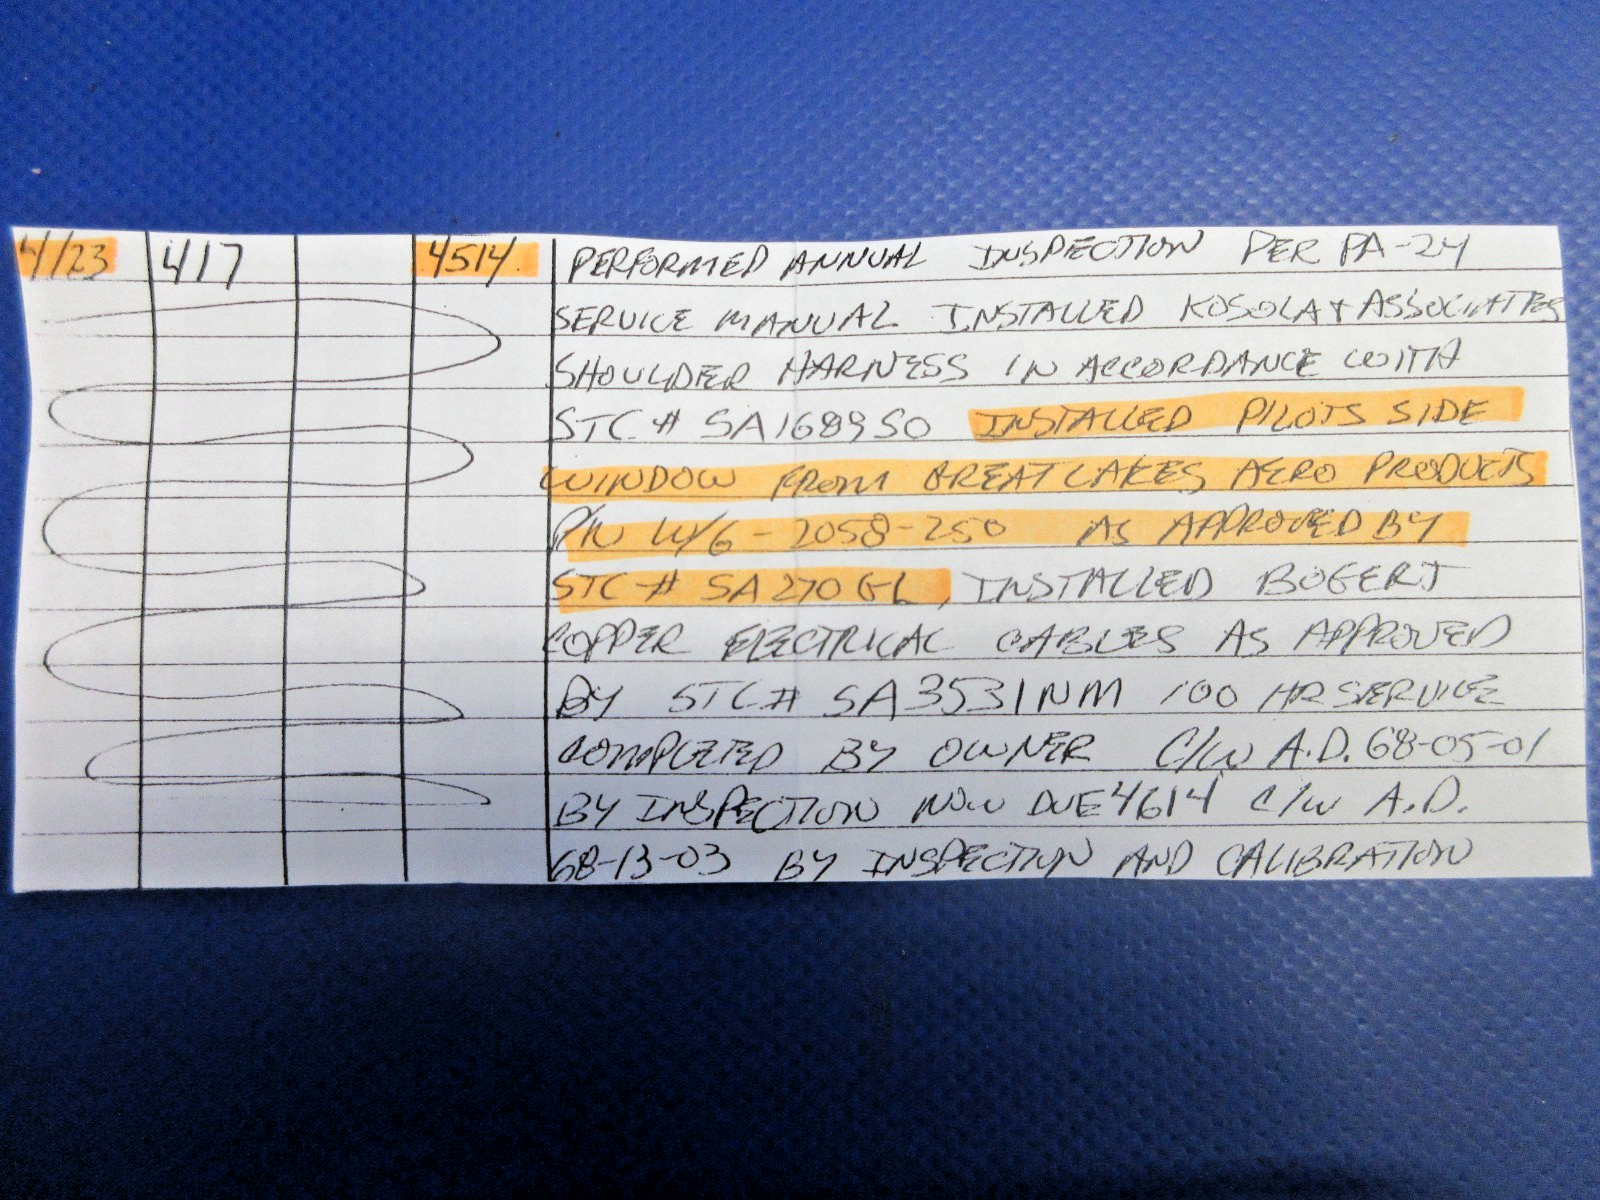 4/23 417 4514 PERFORMED ANNUAL INSPECTION PER PA-24
SERVICE MANUAL INSTALLED KOSOLA + ASSOCIATES
SHOULDER HARNESS IN ACCORDANCE WITH
STC # SA1689SO INSTALLED PILOTS SIDE
WINDOW FROM GREAT LAKES AERO PRODUCTS
P/N W/G-2058-250 AS APPROVED BY
STC # SA270GL, INSTALLED BOGERT
COPPER ELECTRICAL CABLES AS APPROVED
BY STC# SA3531NM 100 HR SERVICE
COMPLETED BY OWNER C/W A.D. 68-05-01
BY INSPECTION NOW DUE 4614 C/W A.D.
68-13-03 BY INSPECTION AND CALIBRATION